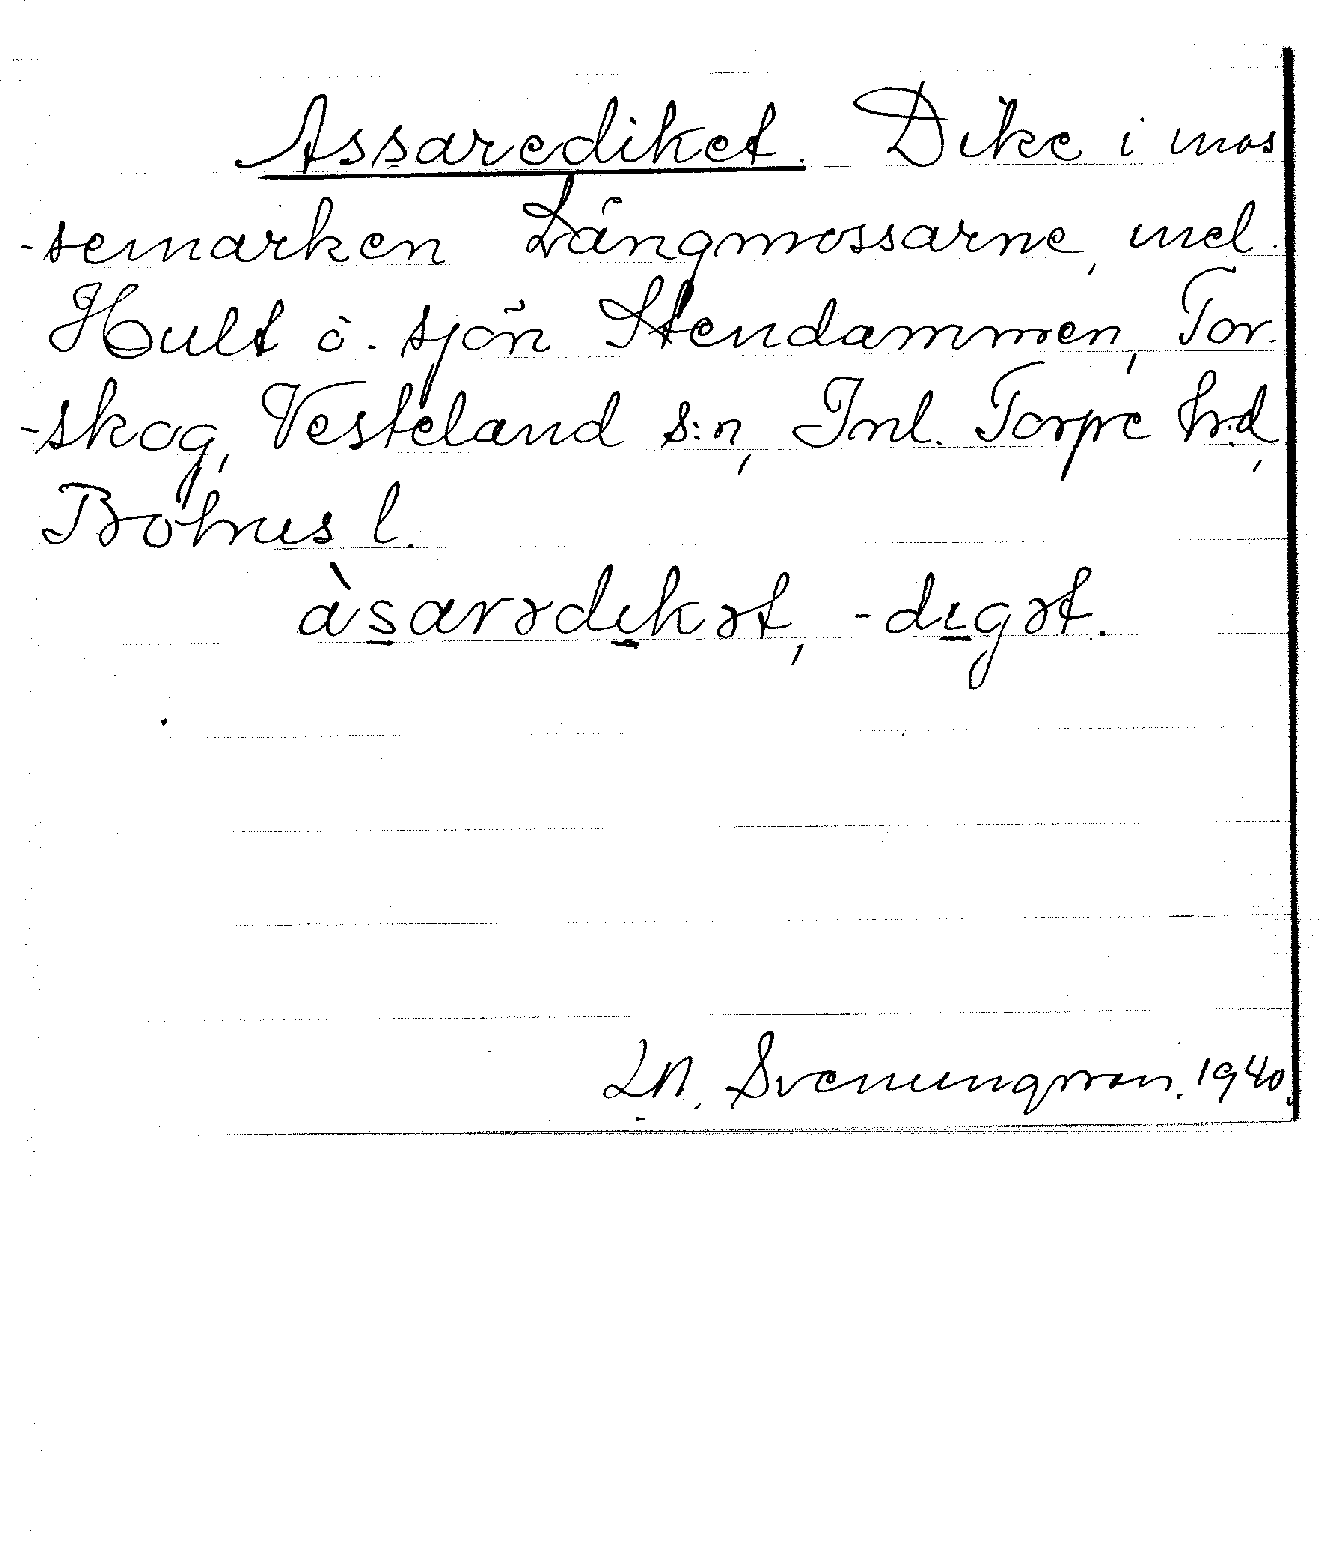 Assarediket. Dike i mos
-semarken Långmossarne, mel.
Hult o. sjön Stendammen, Tor-
-skog, Vesteland s:n, Inl. Torpe hrd,
Bohus l.
àsarədikət, -digət.
Svenungsson. 1940.